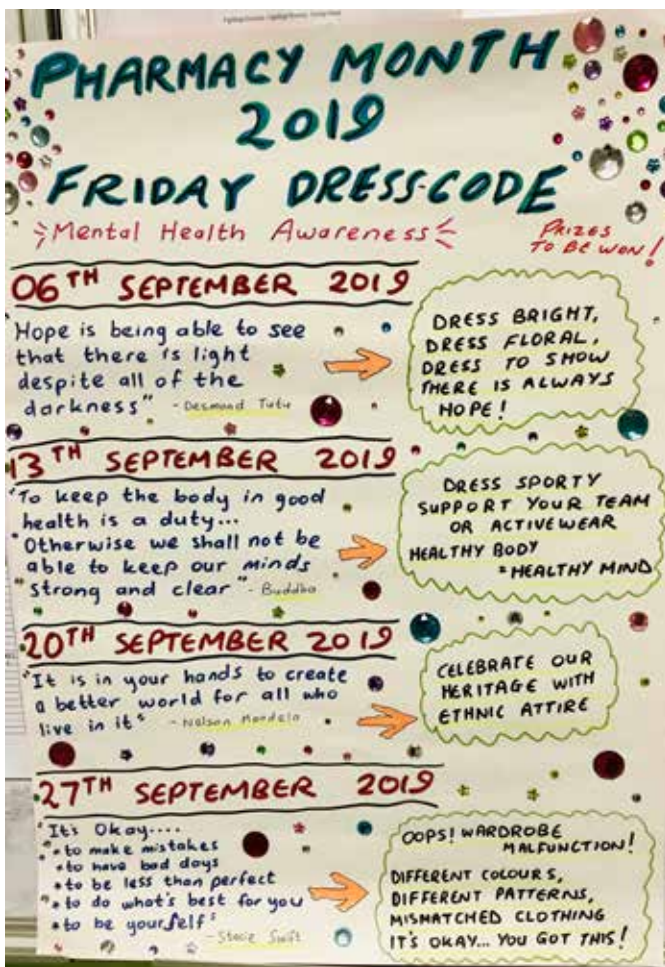 PHARMACY MONTH
2019
FRIDAY DRESS-CODE
Mental Health Awareness
PRIZES
TO BE WON!
06TH SEPTEMBER 2019
Hope is being able to see
that there is light
despite all of the
darkness" - Desmond Tutu
DRESS BRIGHT,
DRESS FLORAL,
DRESS TO SHOW
THERE IS ALWAYS
HOPE!
13TH SEPTEMBER 2019
"To keep the body in good
health is a duty...
Otherwise we shall not be
able to keep our minds
strong and clear" - Buddha
DRESS SPORTY
SUPPORT YOUR TEAM
OR ACTIVEWEAR
HEALTHY BODY
= HEALTHY MIND
20TH SEPTEMBER 2019
"It is in your hands to create
a better world for all who
live in it" - Nelson Mandela
CELEBRATE OUR
HERITAGE WITH
ETHNIC ATTIRE
27TH SEPTEMBER 2019
"It's Okay....
• to make mistakes
• to have bad days
• to be less than perfect
• to do what's best for you
• to be yourself"
- Stacie Swift
OOPS! WARDROBE
MALFUNCTION!
DIFFERENT COLOURS,
DIFFERENT PATTERNS,
MISMATCHED CLOTHING
IT'S OKAY... YOU GOT THIS!